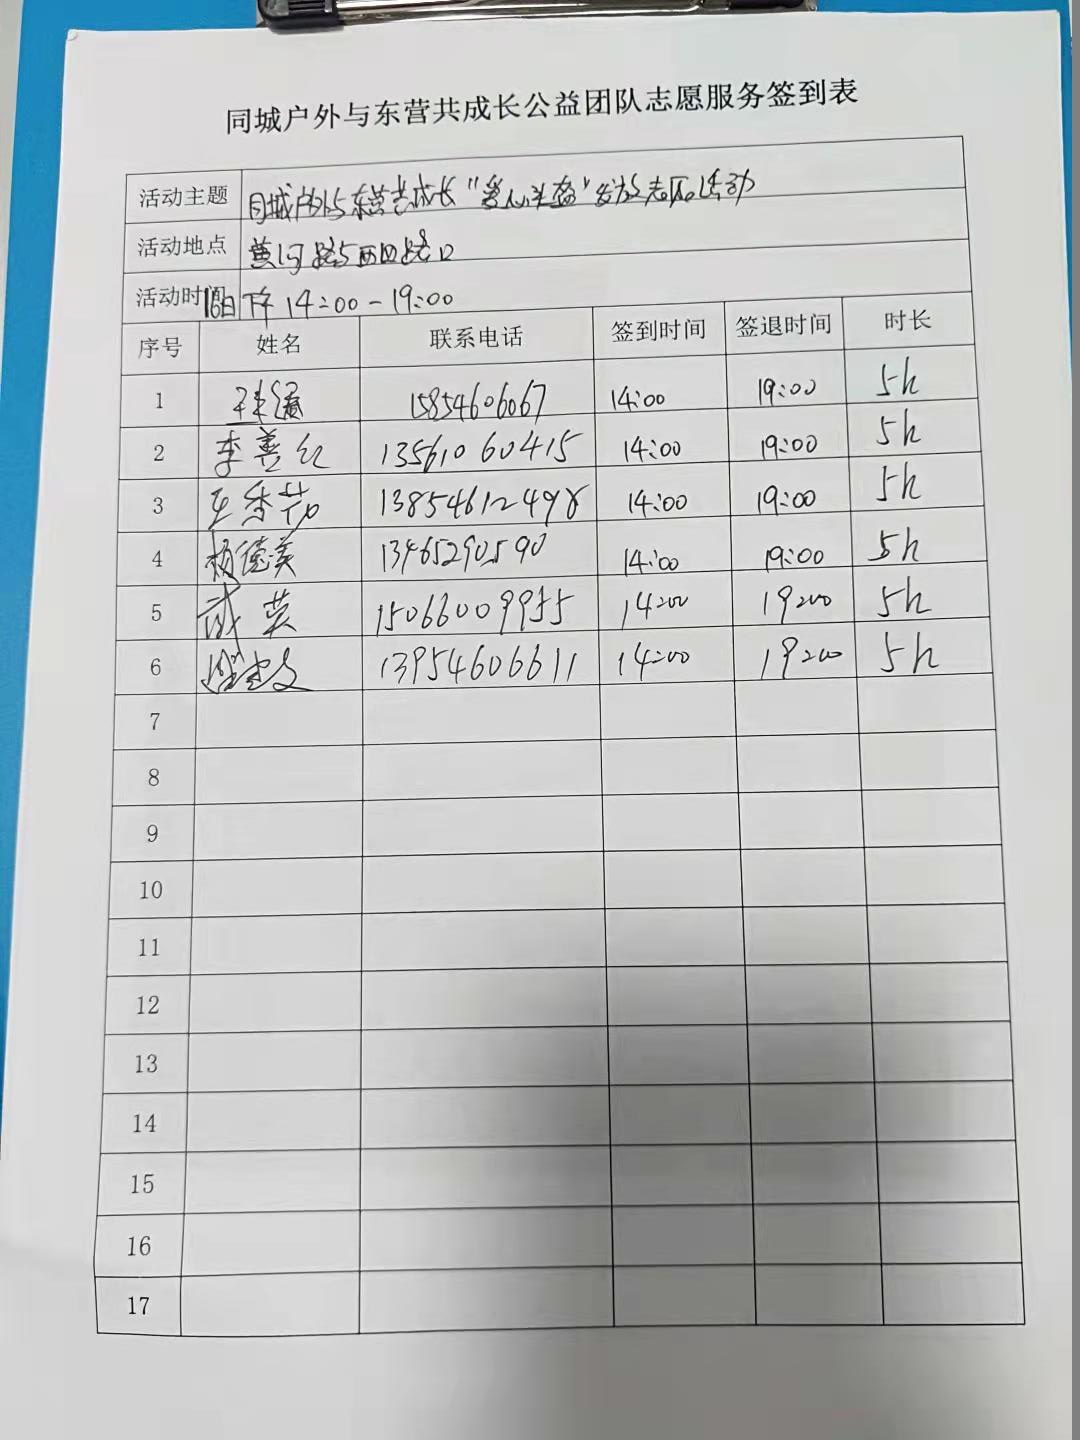 同城户外与东营共成长公益团队志愿服务签到表
活动主题 同城户外与东营共成长“爱心头盔”发放志愿活动
活动地点 黄河路与西四路口
活动时间 16日下午 14:00-19:00
序号 姓名 联系电话 签到时间 签退时间 时长
1 15854606067 14:00 19:00 5h
2 李善红 13561060415 14:00 19:00 5h
3 王秀茹 13854612498 14:00 19:00 5h
4 杨德美 13465290590 14:00 19:00 5h
5 英 15066009955 14:00 19:00 5h
6 13954606611 14:00 19:00 5h
7
8
9
10
11
12
13
14
15
16
17